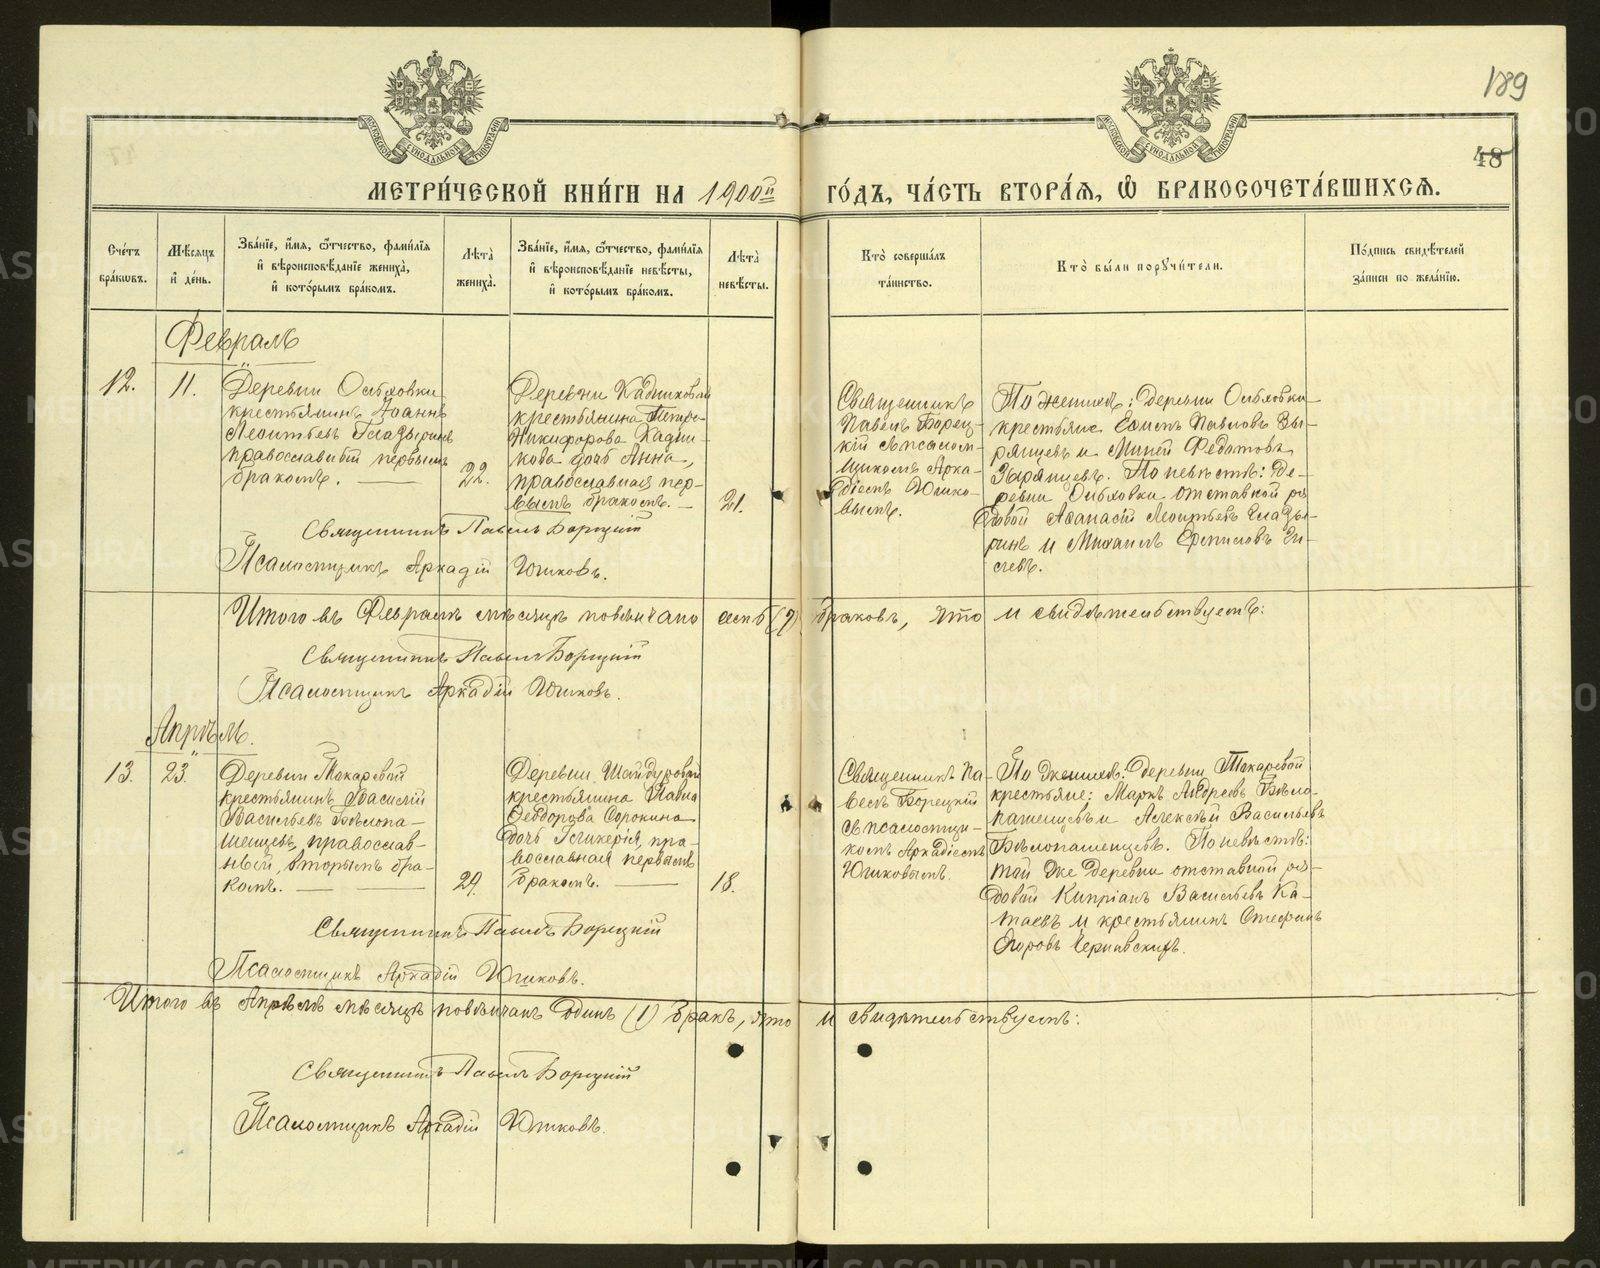 189
48
МОСКОВСКОЙ СУНОДАЛЬНОЙ ТИПОГРАФІИ
МОСКОВСКОЙ СУНОДАЛЬНОЙ ТИПОГРАФІИ
МЕТРИ́ЧЕСКОЙ КНИ́ГИ НА 1900й ГО́ДЪ, ЧА́СТЬ ВТОРА́Я, Ѽ БРАКОСОЧЕТА́ВШИХСЯ.
Сче́тъ бра́ковъ.
Мѣ́сяцъ и҆ де́нь.
Зва́нїе, и҆́мя, ѻ҆́тчество, фами́лїя и҆ вѣроисповѣ́данїе жениха̀, и҆ кото́рымъ бра́комъ.
Лѣта̀ жениха̀.
Зва́нїе, и҆́мя, ѻ҆́тчество, фами́лїя и҆ вѣроисповѣ́данїе невѣ́сты, и҆ кото́рымъ бра́комъ.
Лѣта̀ невѣ́сты.
Кто̀ соверша́лъ та́инство.
Кто̀ бы́ли порꙋчи́тели.
По́дпись свидѣ́телей за́писи по жела́нїю.
Февраль
12.
11.
Деревни
крестьянинъ Іоаннъ
Леонтьевъ Гладыринъ
православный первымъ
бракомъ.
22.
Деревни Кадниковой
крестьянина Петра
Никифорова Кадни-
кова дочь Анна,
православная пер-
вымъ бракомъ.
21.
Священникъ
Павелъ Борец-
кій съ псалом-
щикомъ Арка-
діемъ Юшко-
вымъ.
По женихѣ: деревни
крестьяне Павловъ Зы-
рянцевъ и Миней Федотовъ
Зырянцевъ. По невѣстѣ: де-
ревни отставной ря-
довой Афанасій Леонтьевъ Глады-
ринъ и Михаилъ
Священникъ Павелъ Борецкій
Псаломщикъ Аркадій Юшковъ.
Итого въ Февралѣ мѣсяцѣ повѣнчано семь (7) браковъ, что и свидѣтельствуемъ:
Священникъ Павелъ Борецкій
Псаломщикъ Аркадій Юшковъ.
Апрѣль.
13.
23.
Деревни Токаревой
крестьянинъ Василій
Васильевъ Бѣлопа-
шенцевъ, православ-
ный, вторымъ бра-
комъ.
29.
Деревни Шайдуровой
крестьянина Павла
Ѳеодорова Сорокина
дочь Гликерія, пра-
вославная первымъ
бракомъ.
18.
Священникъ Па-
велъ Борецкій
съ псаломщи-
комъ Аркадіемъ
Юшковымъ.
По женихѣ: деревни Токаревой
крестьяне: Маркъ Андреевъ Бѣло-
пашенцевъ и Алексѣй Васильевъ
Бѣлопашенцевъ. По невѣстѣ:
той же деревни отставной ря-
довой Кипріанъ Васильевъ Ка-
таевъ и крестьянинъ Стефанъ
Егоровъ Чернавскихъ.
Священникъ Павелъ Борецкій
Псаломщикъ Аркадій Юшковъ.
Итого въ Апрѣлѣ мѣсяцѣ повѣнчанъ одинъ (1) бракъ, что и свидѣтельствуемъ:
Священникъ Павелъ Борецкій
Псаломщикъ Аркадій Юшковъ.